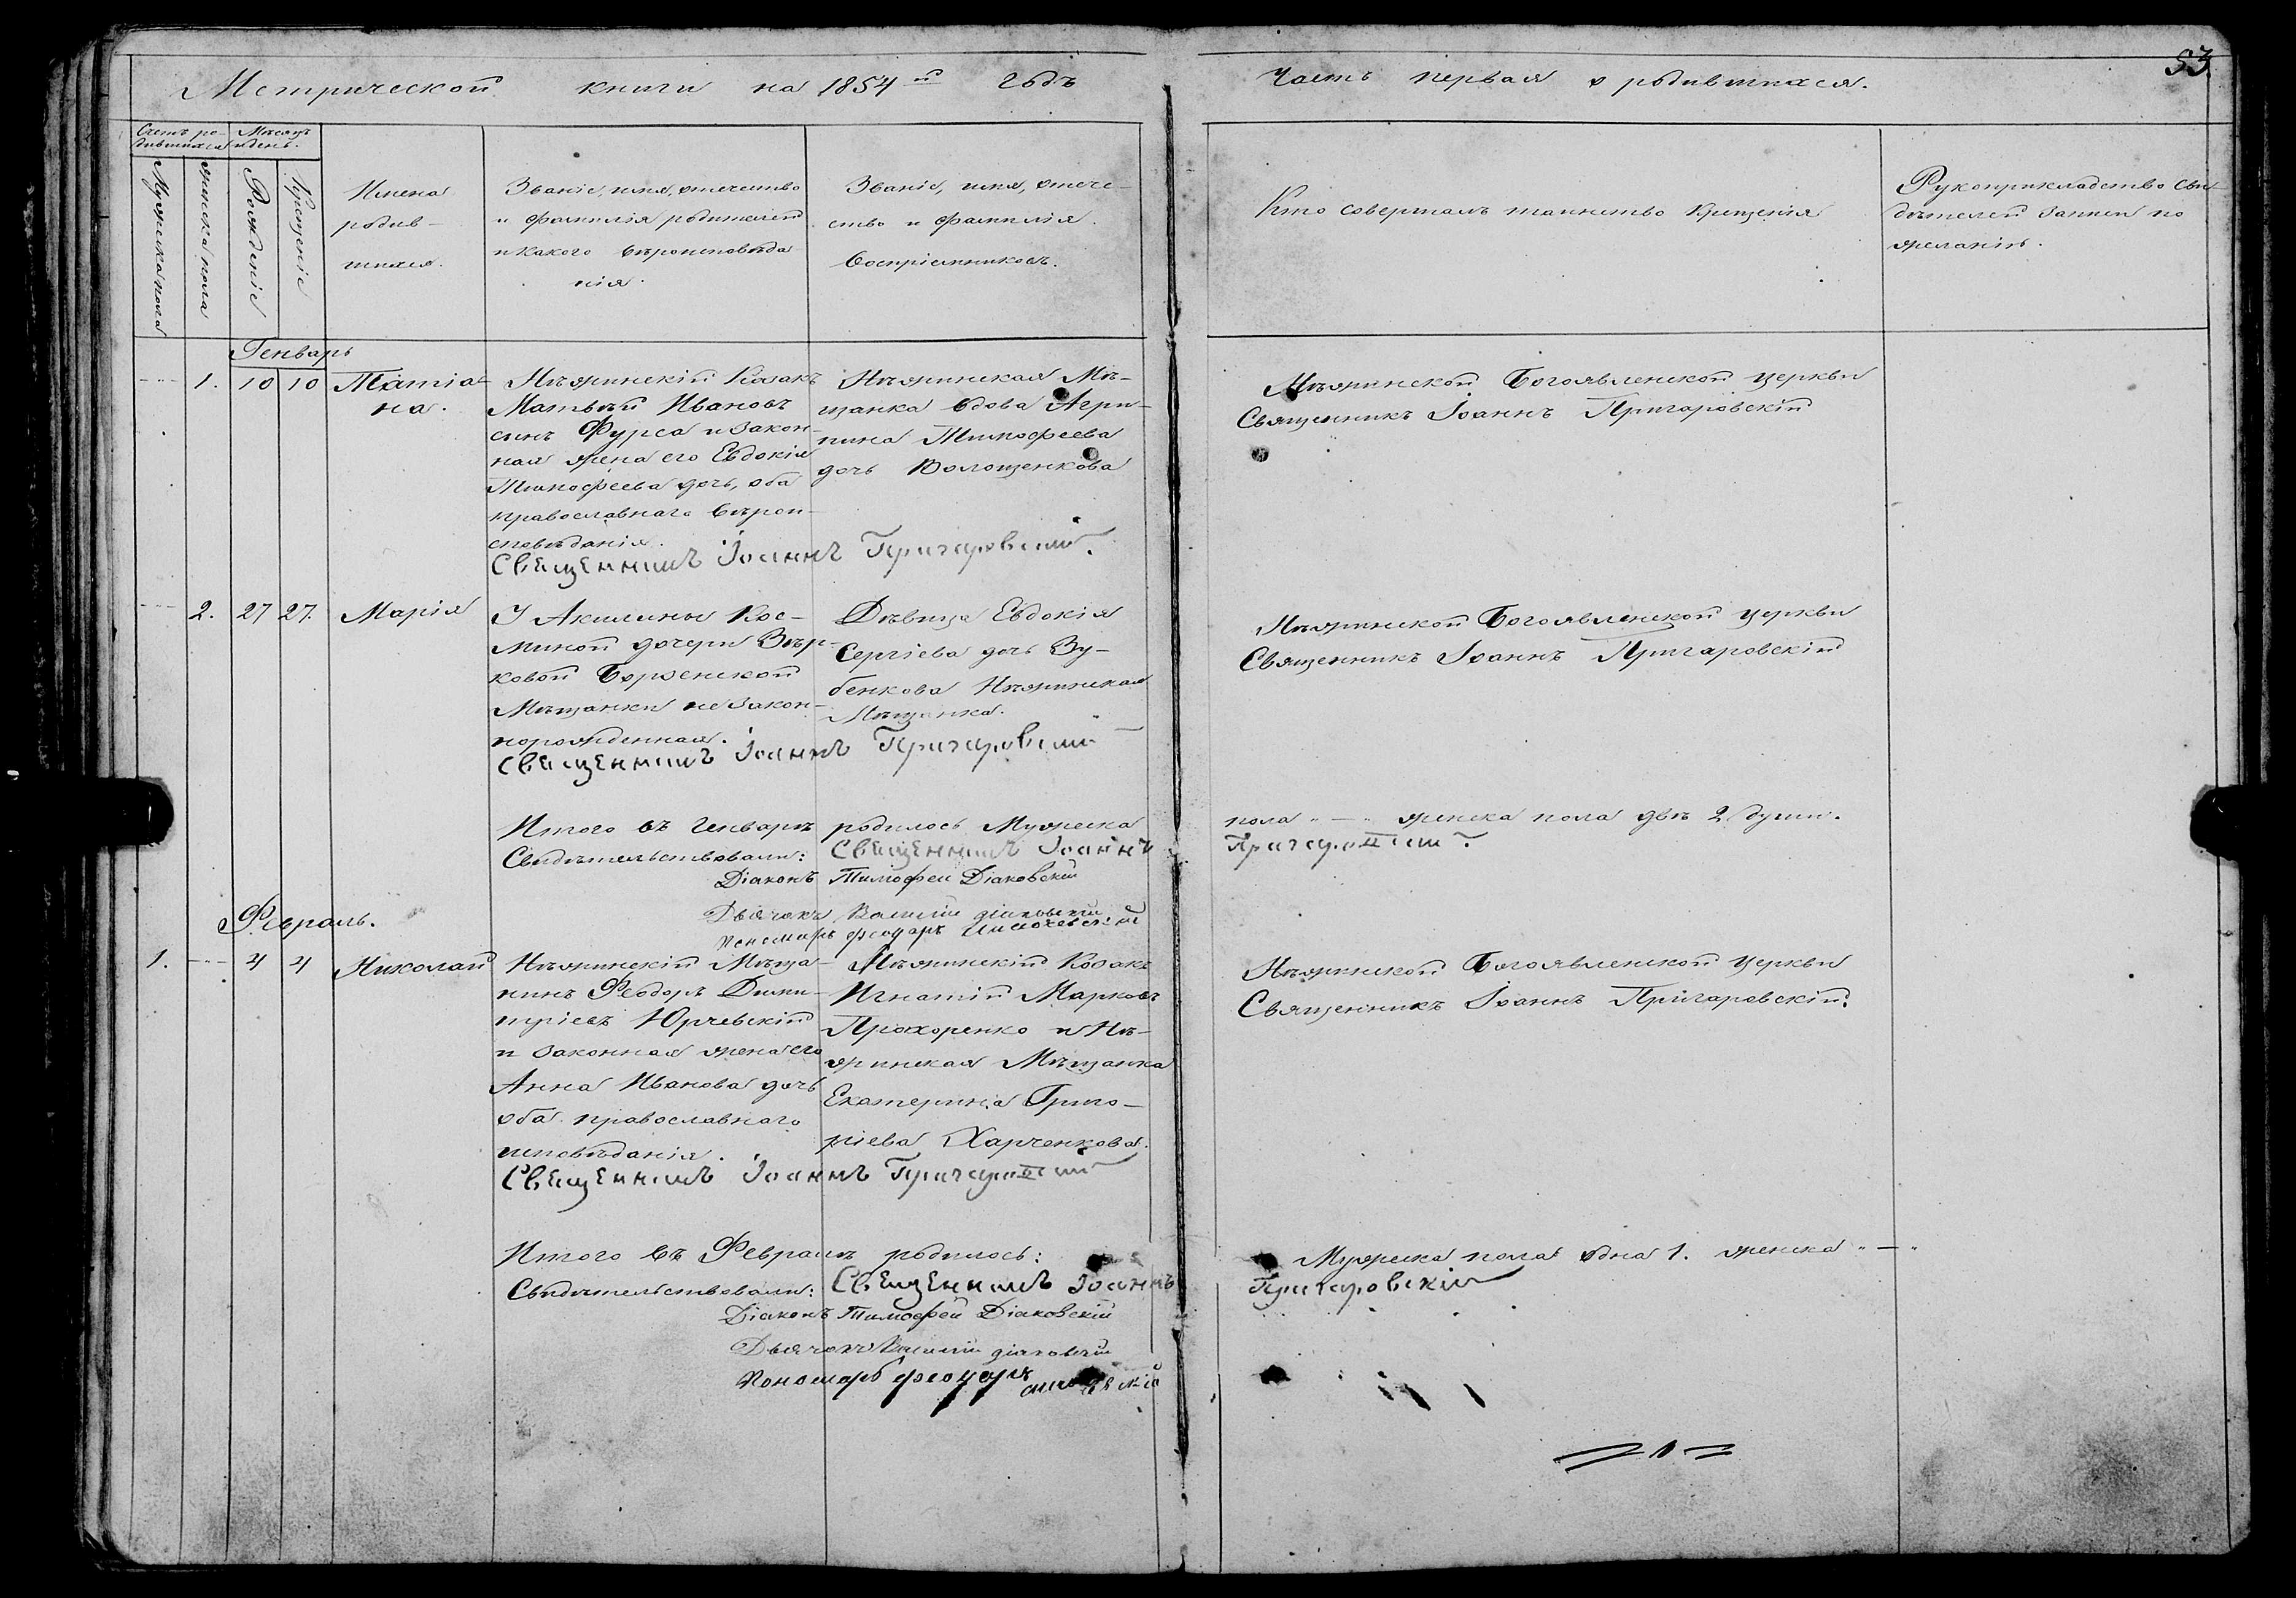 53
Метрической книги на 1854й годъ
Часть первая о родившихся.
Счетъ ро-
дившихся
Мѣсяцъ
и день.
Мужеска пола
Женска пола
Рожденіе
Крещеніе
Имена
родив-
шихся.
Званіе, имя, отечество
и фамилія родителей
и какого вѣроисповѣда
нія.
Званіе, имя, отече-
ство и фамилія
воспріемниковъ.
Кто совершалъ таинство крещенія
Рукоприкладство сви
дѣтелей записи по
желанію.
Генварь
1. 10 10 Татіа-
на.
Нѣжинскій Козакъ
Матвѣй Ивановъ
сынъ Фурса и закон-
ная жена его Евдокія
Тимофеева дочь, оба
православнаго вѣрои-
сповѣданія.
Нѣжинская Мѣ-
щанка вдова Агри-
пина Тимофеева
дочь Волощенкова
Нѣжинской Богоявленской церкви
Священникъ Іоаннъ Пригаровскій
Священникъ Іоаннъ Пригаровскій.
2. 27 27. Марія
У Акилины Кос-
миной дочери Звѣр-
ковой Борзенской
Мѣщанки незакон-
норожденная.
Дѣвица Евдокія
Сергіева дочь Зу-
бенкова Нѣжинская
Мѣщанка.
Нѣжинской Богоявленской церкви
Священникъ Іоаннъ Пригаровскій
Священникъ Іоаннъ Пригаровскій
Итого въ Генварѣ родилось Мужеска
пола „—„ женска пола двѣ 2 души.
Свидѣтельствовали: Священникъ Іоаннъ
Пригаровскій
Діаконъ Тимофей Діаковскій
Дьячокъ Василій діаковскій
Пономарь феодоръ
Февраль.
1. 4 4 Николай
Нѣжинскій Мѣща-
нинъ Феодоръ Дими-
тріевъ Юрчевскій
и законная жена его
Анна Иванова дочь
оба православнаго
исповѣданія.
Нѣжинскій Козакъ
Игнатій Марковъ
Прохоренко и Нѣ-
жинская Мѣщанка
Екатерина Григо-
ріева Харченкова.
Нѣжинской Богоявленской церкви
Священникъ Іоаннъ Пригаровскій.
Священникъ Іоаннъ Пригаровскій
Итого въ Февралѣ родилось:
Мужеска пола одна 1. женска „—„
Свидѣтельствовали: Священникъ Іоаннъ
Пригаровскій
Діаконъ Тимофей Діаковскій
Дьячокъ Василій діаковскій
Пономарь феодоръ